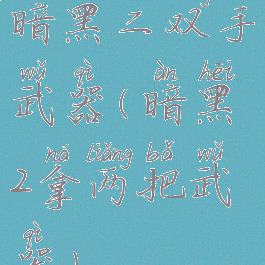 暗黑二双手
wǔ qì àn hēi
武器(暗黑
ná liǎng bǎ wǔ
2拿两把武
qì
器)